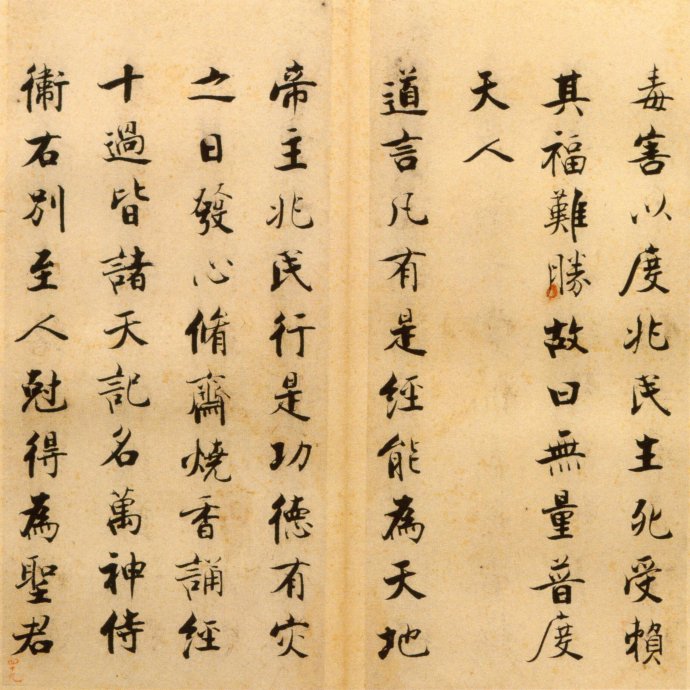 毒害以度兆民生死受賴
其福難勝故曰無量普度
天人
道言凡有是經能為天地
帝主兆民行是功德有灾
之日發心脩齋燒香誦經
十過皆諸天記名萬神侍
衛右別至人尅得為聖君
四十九